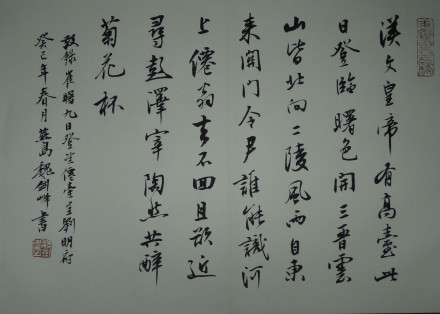 漢文皇帝有高臺此
日登臨曙色開三晉雲
山皆北向二陵風雨自東
来關門令尹誰能識河
上僊翁去不回且欲近
尋彭澤宰陶然共醉
菊花杯
敬錄崔曙九日登望僊臺呈劉明府
癸巳年春月島魏劍峰書